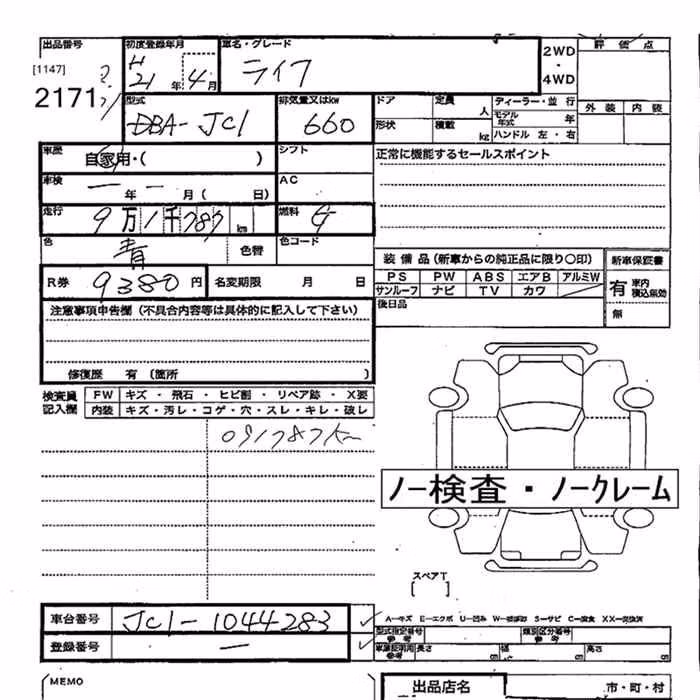 出品番号 初度登録年月 車名・グレード 2WD ・ 4WD 評価点
[1147] H 21年 4月 ライフ
2171 外装 内装
型式 排気量又はkw ドア 定員 人 ディーラー・並 行
DBA-JC1 660 モデル年式 年
形状 積載 kg ハンドル 左・右
車歴 自家用・( ) シフト 正常に機能するセールスポイント
車検 一年一月( 日) AC
走行 9万1千787km 燃料 G
色 青 色替 色コード 装備品(新車からの純正品に限り○印) 新車保証書
PS PW ABS エアB アルミW 有 車内積込無効
R券 9380円 名変期限 月 日 サンルーフ ナビ TV カワ
後日品 無
注意事項申告欄(不具合内容等は具体的に記入して下さい)
修復歴 有(箇所 )
検査員記入欄 FW キズ・飛石・ヒビ割・リペア跡・X要
内装 キズ・汚レ・コゲ・穴・スレ・キレ・破レ
091787km
ノー検査・ノークレーム
スペアT
[ ]
車台番号 JC1-1044283 A-キズ E-エクボ U-凹み S-サビ C-腐食
登録番号 一 型式指定番号 参考 類別区分番号 参考
参考 長さ 幅 高さ
MEMO 出品店名 市・町・村